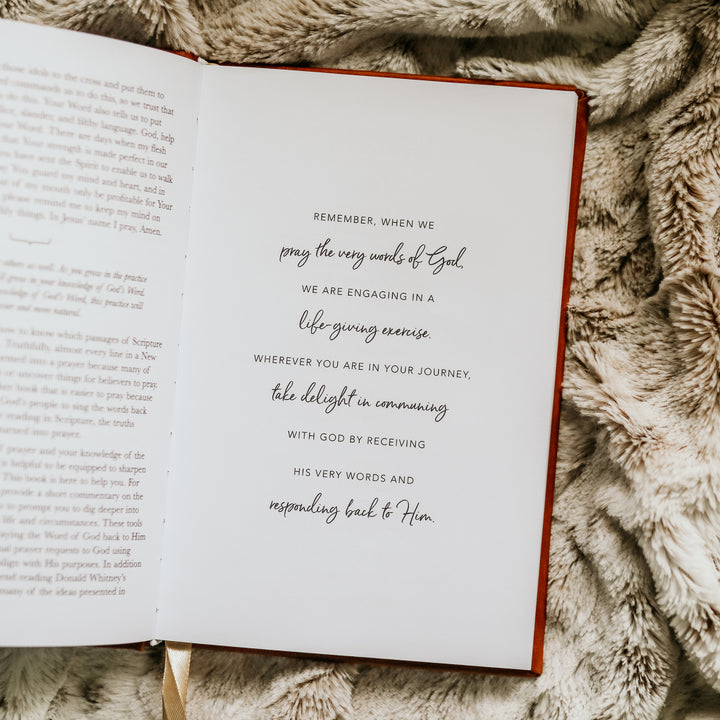 those idols to the cross and put them to
commands us to do this, so we trust that
do this. Your Word also tells us to put
slander, and filthy language. God, help
Your Word. There are days when my flesh
that Your strength is made perfect in our
have sent the Spirit to enable us to walk
You guard my mind and heart, and in
of my mouth only be profitable for Your
please remind me to keep my mind on
things. In Jesus' name I pray, Amen.
others as well. As you grow in the practice
grow in your knowledge of God's Word.
knowledge of God's Word, this practice will
more and more natural.
to know which passages of Scripture
Truthfully, almost every line in a New
into a prayer because many of
or uncover things for believers to pray.
book that is easier to pray because
God's people to sing the words back
reading in Scripture, the truths
turned into prayer.
prayer and your knowledge of the
is helpful to be equipped to sharpen
This book is here to help you. For
provide a short commentary on the
to prompt you to dig deeper into
life and circumstances. These tools
praying the Word of God back to Him
prayer requests to God using
align with His purposes. In addition
reading Donald Whitney's
many of the ideas presented in
REMEMBER, WHEN WE
pray the very words of God,
WE ARE ENGAGING IN A
life-giving exercise.
WHEREVER YOU ARE IN YOUR JOURNEY,
take delight in communing
WITH GOD BY RECEIVING
HIS VERY WORDS AND
responding back to Him.